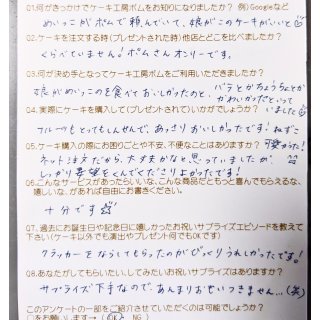 01.何がきっかけでケーキ工房ボムをお知りになりましたか? 例)Googleなど
めいっこがボムで頼んでいて、娘がこのケーキがいいと
02.ケーキを注文する時(プレゼントされた時)他店とどこを比べましたか?
くらべていません!ボムさんオンリーです。
03.何が決め手となってケーキ工房ボムをご利用いただきましたか?
娘がめいっこのを食べておいしかったのと、バラとかちょうちょとか
かわいかったといって
04.実際にケーキを購入して(プレゼントされて)いかがでしたか?
いました
フルーツもとってもしんせんで、あっさりおいしかったです!ねずこ
05.ケーキ購入の際にお困りごとや不安、不便なことはありますか?
可愛かった!
ネット注文だから、大丈夫かなと思っていましたが、
しっかり希望をくんでくださりよかったです!
06.こんなサービスがあったらいいな、こんな商品だともっと喜んでもらえるな、
嬉しいな、があれば自由にお書きください。
十分です
07.過去にお誕生日や記念日に嬉しかったお祝いサプライズエピソードを教えて
下さい(ケーキ以外でも演出やプレゼント何でもOKです)
クラッカーをならしてもらったのがびっくりうれしかったです!
08.あなたがしてもらいたい、してみたいお祝いサプライズはありますか?
サプライズ下手なので、あんまりおもいつきません…(笑)
このアンケートの一部をご紹介させていただくのは可能でしょうか?
○をお願いします→ ( OK NG )